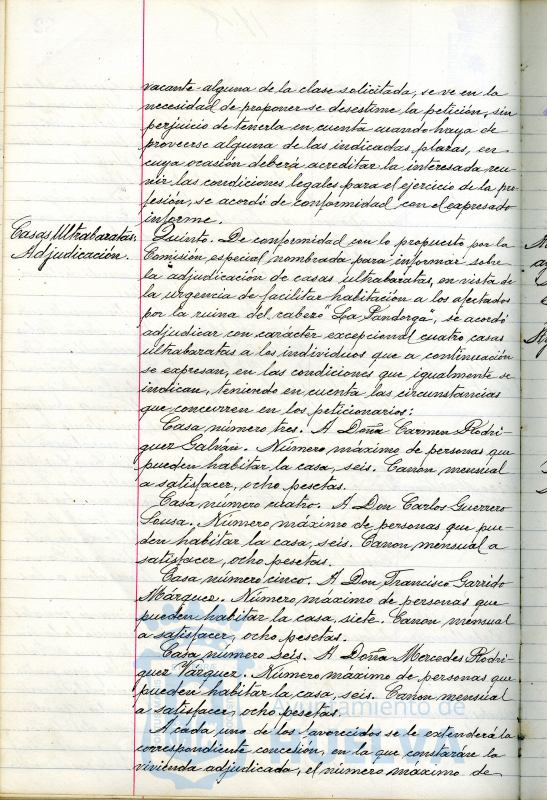 vacante alguna de la clase solicitada, se ve en la
necesidad de proponer se desestime la petición, sin
perjuicio de tenerla en cuenta cuando haya de
proveerse alguna de las indicadas plazas, en
cuya ocasión deberá acreditar la interesada reu-
nir las condiciones legales para el ejercicio de la pro-
fesión, se acordó de conformidad con el expresado
informe.
Casas Ultrabaratas.
Adjudicación.
Quinto. De conformidad con lo propuesto por la
Comisión especial nombrada para informar sobre
la adjudicación de casas ultrabaratas, en vista de
la urgencia de facilitar habitación a los afectados
por la ruina del cabezo "La Pandorga", se acordó
adjudicar con carácter excepcional cuatro casas
ultrabaratas a los individuos que a continuación
se expresan, en las condiciones que igualmente se
indican, teniendo en cuenta las circunstancias
que concurren en los peticionarios:
Casa número tres. A Doña Carmen Rodri-
guez Galván. Número máximo de personas que
pueden habitar la casa, seis. Canon mensual
a satisfacer, ocho pesetas.
Casa número cuatro. A Don Carlos Guerrero
Sousa. Número máximo de personas que pue-
den habitar la casa, seis. Canon mensual a
satisfacer, ocho pesetas.
Casa número cinco. A Don Francisco Garrido
Márquez. Número máximo de personas que
pueden habitar la casa, siete. Canon mensual
a satisfacer, ocho pesetas.
Casa número seis. A Doña Mercedes Rodri-
guez Vázquez. Número máximo de personas que
pueden habitar la casa, seis. Canon mensual
a satisfacer, ocho pesetas.
Ayuntamiento de
A cada uno de los favorecidos se le extenderá la
correspondiente concesión, en la que constarán la
vivienda adjudicada, el número máximo de